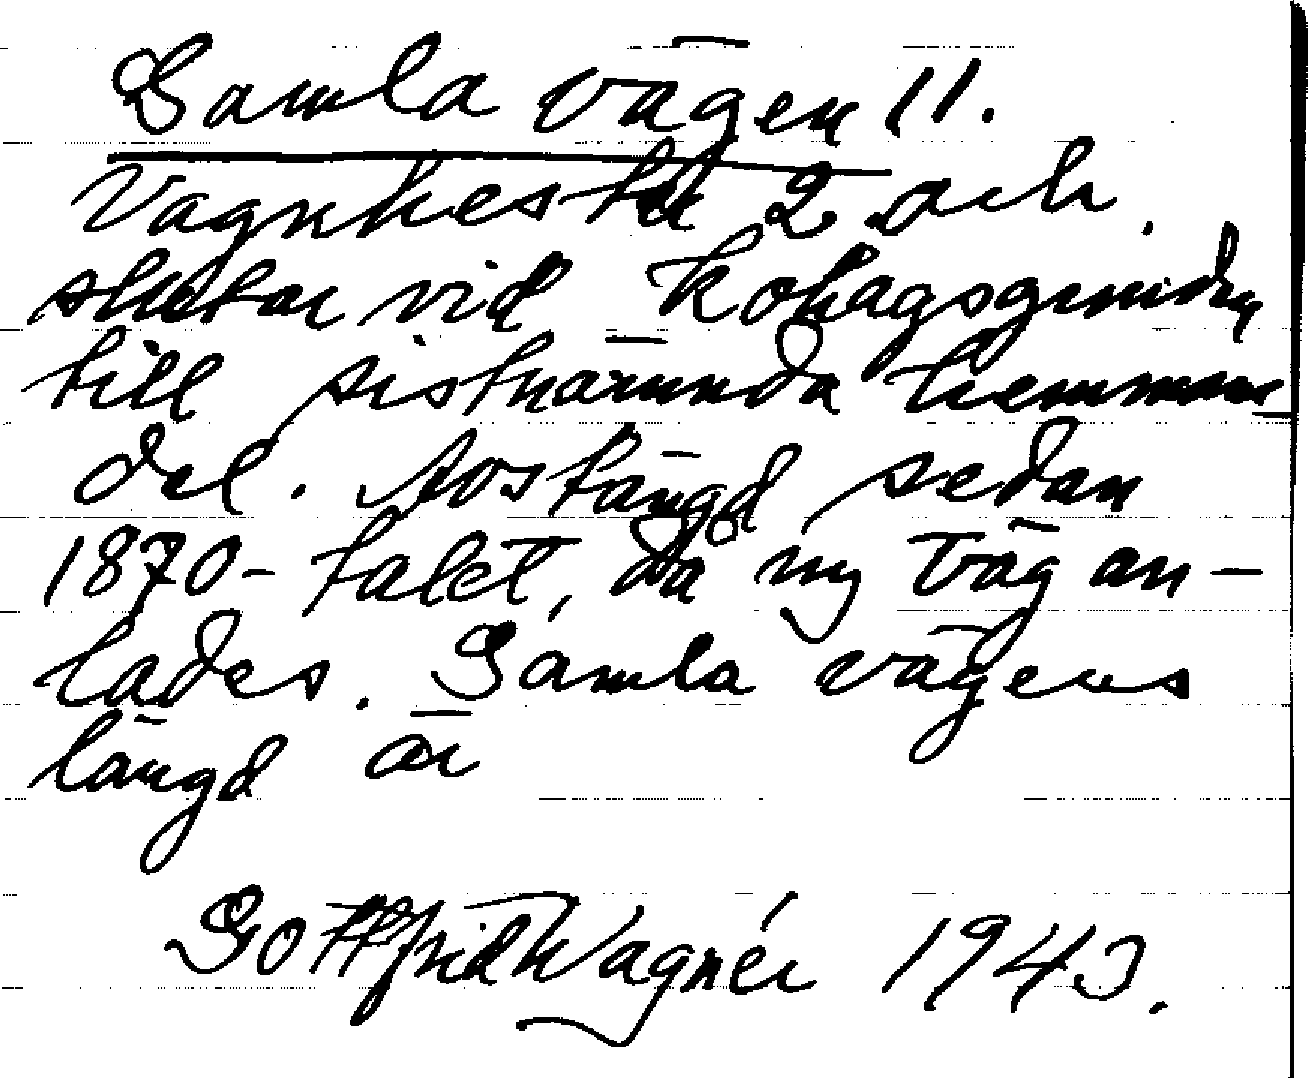 Gamla vägen 11.
Vagnhester 2 och
slutar vid kohagsgrinden
till sistnämnda hemmans
del. Avstängd sedan
1870-talet, då ny väg an-
lades. Gamla vägens
längd är
Gottfrid Wagnér 1943.